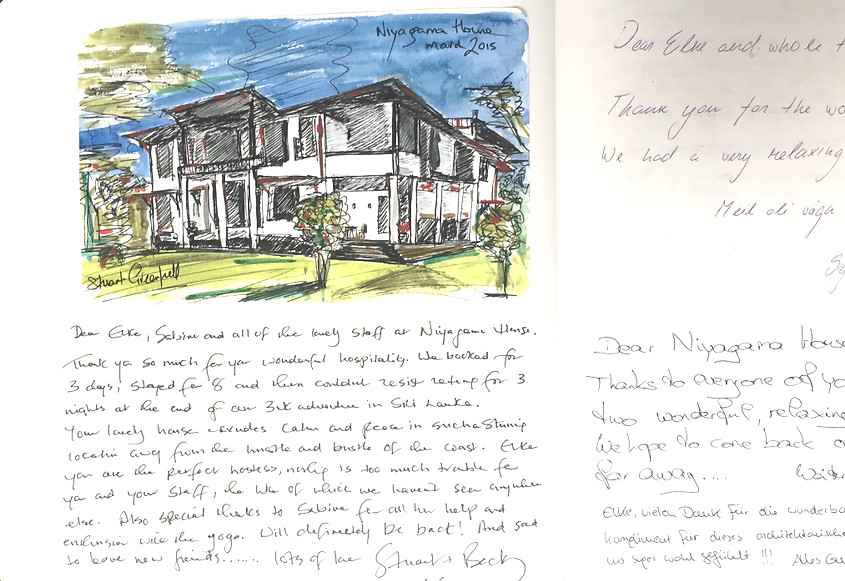 Niyagama House
March 2015
Stuart Greenfell
Dear Elke, Sabine and all of the lovely staff at Niyagama House.
Thank you so much for your wonderful hospitality. We booked for
3 days, stayed for 8 and then couldnt resist retung for 3
nights at the end of our 3wk adventure in Sri Lanka.
Your lovely house exudes calm and peace in such a stunning
location away from the hustle and bustle of the coast. Elke
you are the perfect hostess, nothing is too much trouble for
you and your staff, the like of which we havent seen anywhere
else. Also special thanks to Sabine for all her help and
enthusiasm with the yoga. Will definitely be back! And sad
to leave new friends...... lots of love Stuart + Becky
Dear Elke and whole t
Thank you for the wo
We had a very relaxing
Meil oli väga
Dear Niyagama House
Thanks to everyone of yo
two wonderful, relaxing
We hope to come back o
for away....
Elke, vielen Dank für die wunderba
Kompliment für dieses architektonische
uns super wohl gefühlt!!! Alles Gu